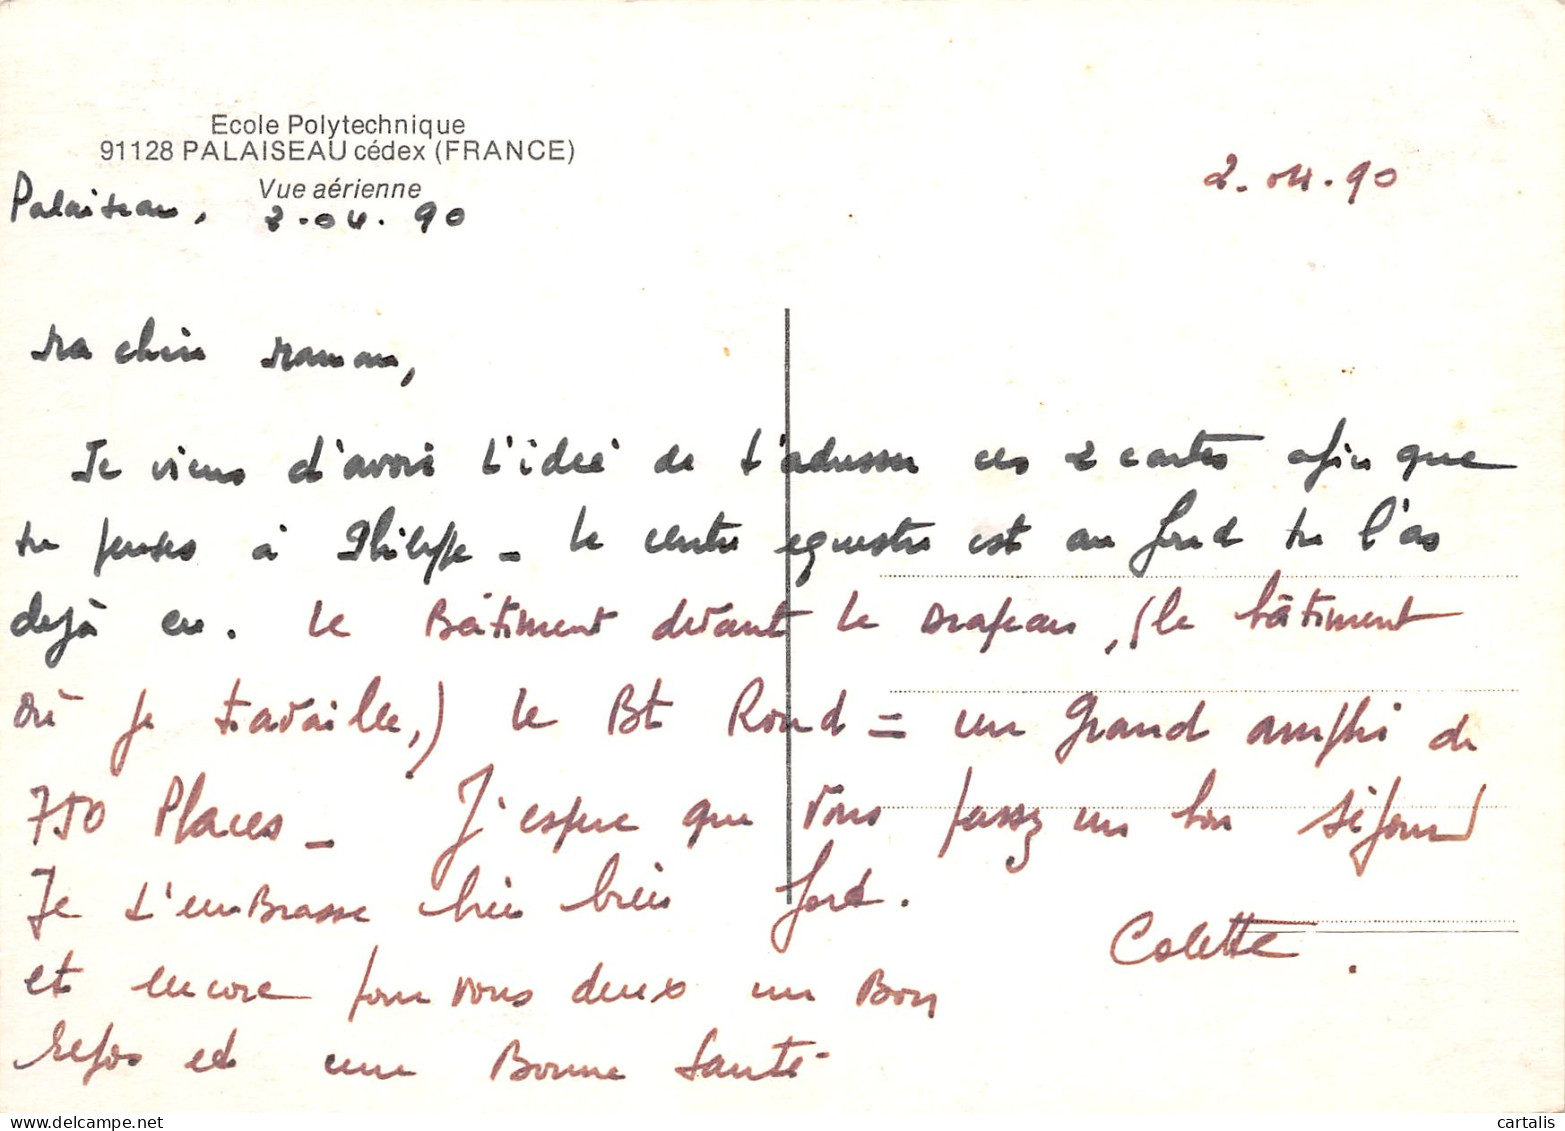 Ecole Polytechnique
91128 PALAISEAU cédex (FRANCE)
Vue aérienne
Palaiseau, 2.04.90
2.04.90
Ma chère Maman,
Je viens d'avoir l'idée de t'adresser ces 2 cartes afin que
tu penses à Philippe - le centre equestre est au fond tu l'as
dejà vu. Le Bâtiment devant le Drapeau, (le bâtiment
où je travaille,) le Bt Rond = un Grand amphi de
750 Places - J'espère que vous passez un bon séjour
Je t'emBrasse bien bien fort.
Colette.
et encore pour vous deux un Bon
repos et une Bonne Santé
cartalis